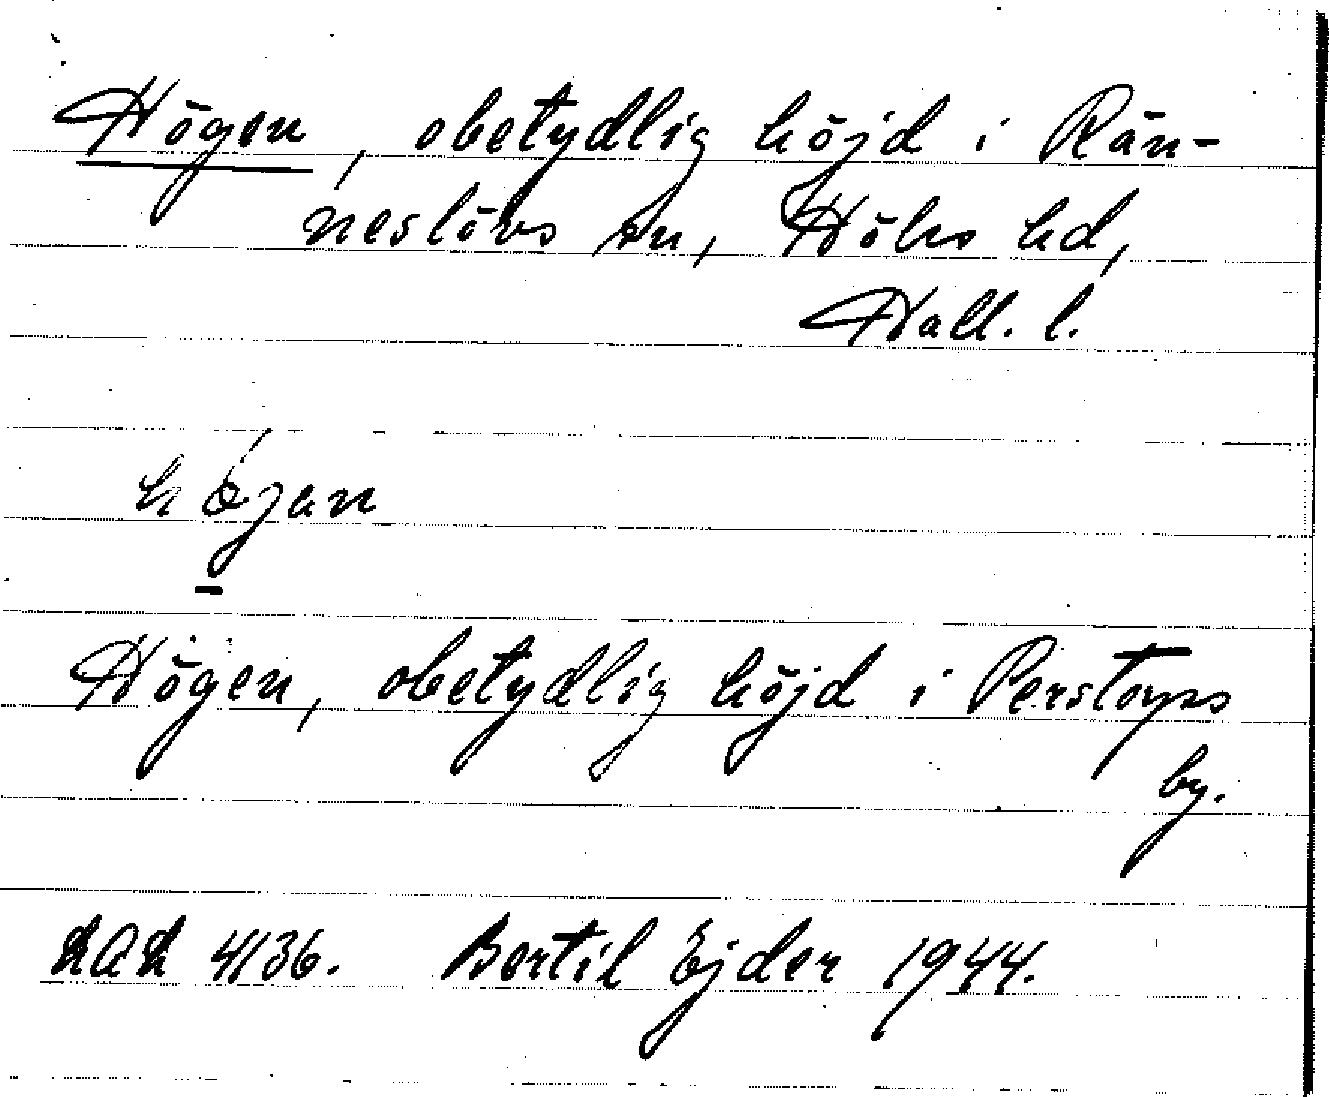 Högen, obetydlig höjd i Rän-
neslövs sn, Höks hd,
Hall. l.
Högen, obetydlig höjd i Perstorps
by.
4136. Bertil Ejder 1944.